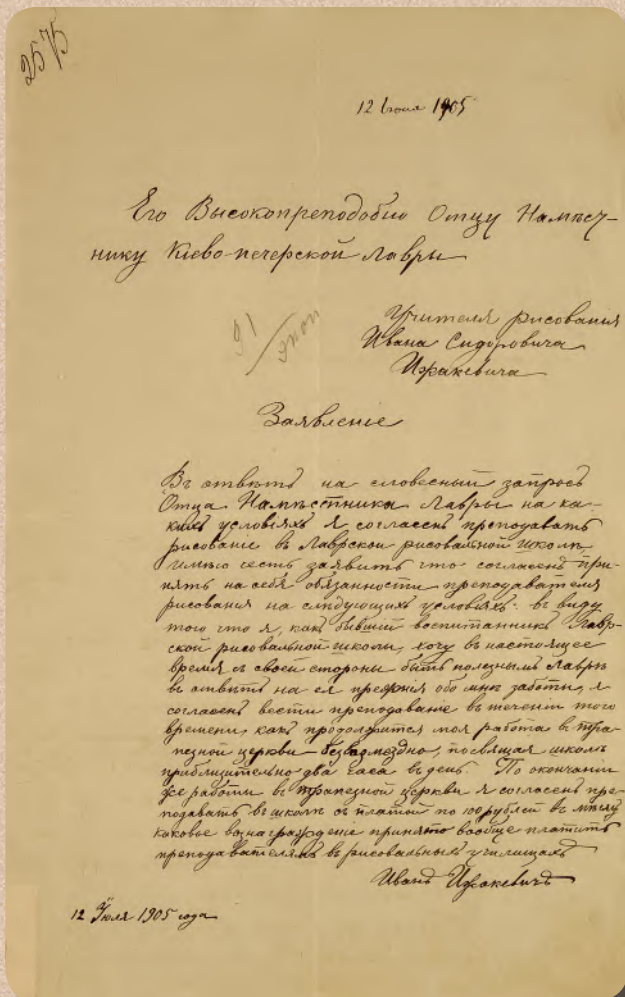 2575
12 Июля 1905
Его Высокопреподобию Отцу Намѣст-
нику Кіево-печерской Лавры
Учителя рисованія
Ивана Сидоровича
Ижакевича
91
Заявленіе
Въ отвѣтъ на словесный запросъ
Отца Намѣстника Лавры на ка-
кихъ условіяхъ я согласенъ преподавать
рисованіе въ Лаврской рисовальной школѣ,
имѣю честь заявить что согласенъ при-
нять на себя обязанности преподавателя
рисованія на слѣдующихъ условіяхъ: въ виду
того что я, какъ бывшій воспитанникъ Лавр-
ской рисовальной школы, хочу въ настоящее
время съ своей стороны быть полезнымъ Лаврѣ
въ отвѣтъ на ея прежнія обо мнѣ заботы, я
согласенъ вести преподаваніе въ теченіи того
времени, какъ продолжится моя работа въ тра-
пезной церкви – безвозмездно, посвящая школѣ
приблизительно два часа въ день. По окончаніи
же работы въ трапезной церкви я согласенъ пре-
подавать въ школѣ съ платой по 100 рублей въ мѣсяцъ
каковое вознагражденіе принято вообще платить
преподавателямъ въ рисовальныхъ училищахъ
Иванъ Ижакевичъ
12 Іюля 1905 года